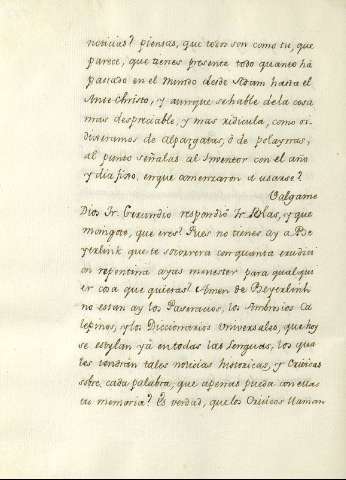 noticias? piensas, que todos son como tu, que
parece, que tienes presente todo quanto há
passado en el Mundo desde Adam hasta el
Ante-Christo, y aunque se hable de la cosa
mas despreciable, y mas ridicula, como si
dixeramos de Alpargatas, ò de polaynas,
al punto señalas al Inventor con el año
y dia fixo, en que comenzaron a usarse?
Valgame
Dios Fr. Gerundio respondiò Fr. Blas, y que
mongote, que eres! Pues no tienes ay a Be
yerlink que te socorrera con quanta erudici
on repentina ayas menester para qualqui
er cosa que quieras? Amen de Beyerlinh
no estan ay los Paseracios, los Ambrosios Ca
lepinos, y los Diccionarios Universales, que hoy
se estylan yà en todas las lenguas, los qua
les tendràn tales noticias historicas, y Criticas
sobre cada palabra, que apenas pueda con ellas
tu memoria? Es verdad, que los Criticos llaman